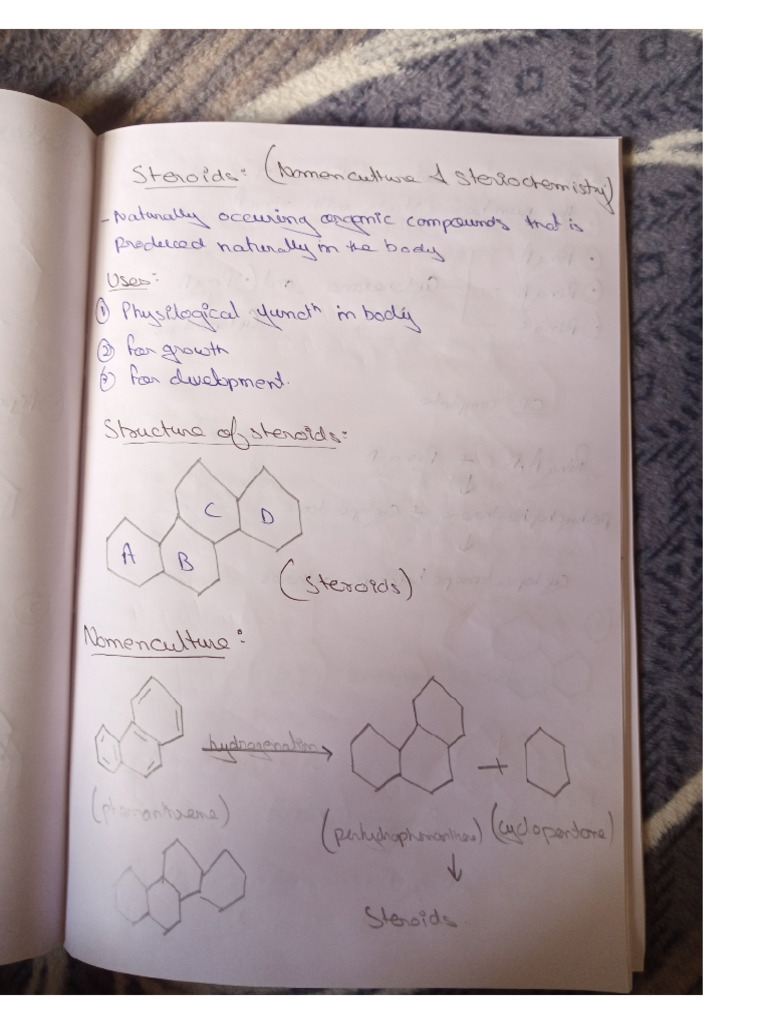 Steroids: (Nomenculture & Steriochemistry)
- Naturally occuring organic compounds that is
Produced naturally in the body
Uses:
① Physilogical funcⁿ in body
② for growth
③ for development.
Structure of steroids:
A B C D
(Steroids)
Nomenculture:
hydrogenation
+
(phenantrene)
(perhydrophenantrene) (cyclopentane)
Steroids